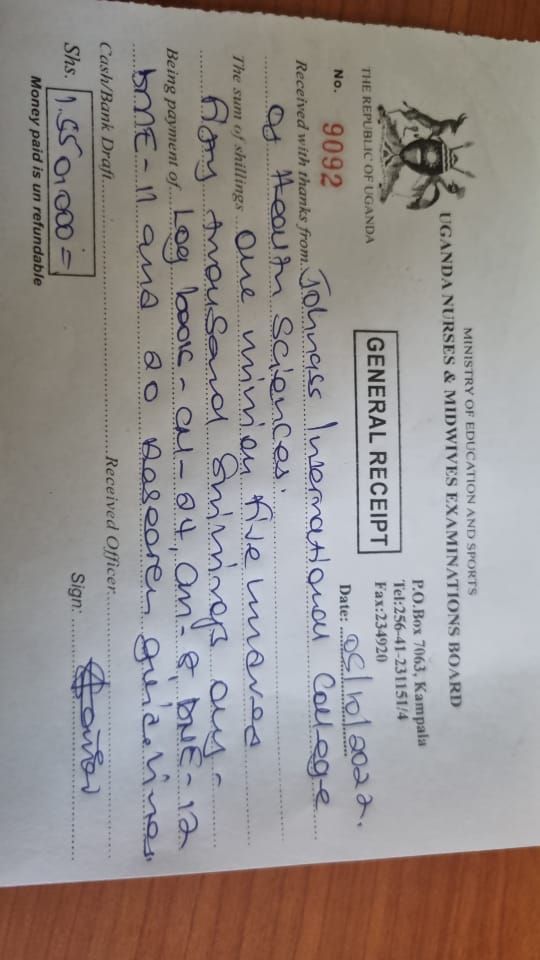 MINISTRY OF EDUCATION AND SPORTS
UGANDA NURSES & MIDWIVES EXAMINATIONS BOARD
P.O.Box 7063, Kampala
Tel:256-41-231151/4
Fax:234920
THE REPUBLIC OF UGANDA
GENERAL RECEIPT
No. 9092
Date: 05/10/2022.
Received with thanks from Johngss International College
of Health Sciences.
The sum of shillings one million five hundred
fifty thousand shillings only-
Being payment of Log book - CN-24, CM-8, DNE-12
DME-11 and 20 Research guidelines
Cash/Bank Draft
Received Officer
Shs. 1,550,000=
Sign:
Money paid is un refundable